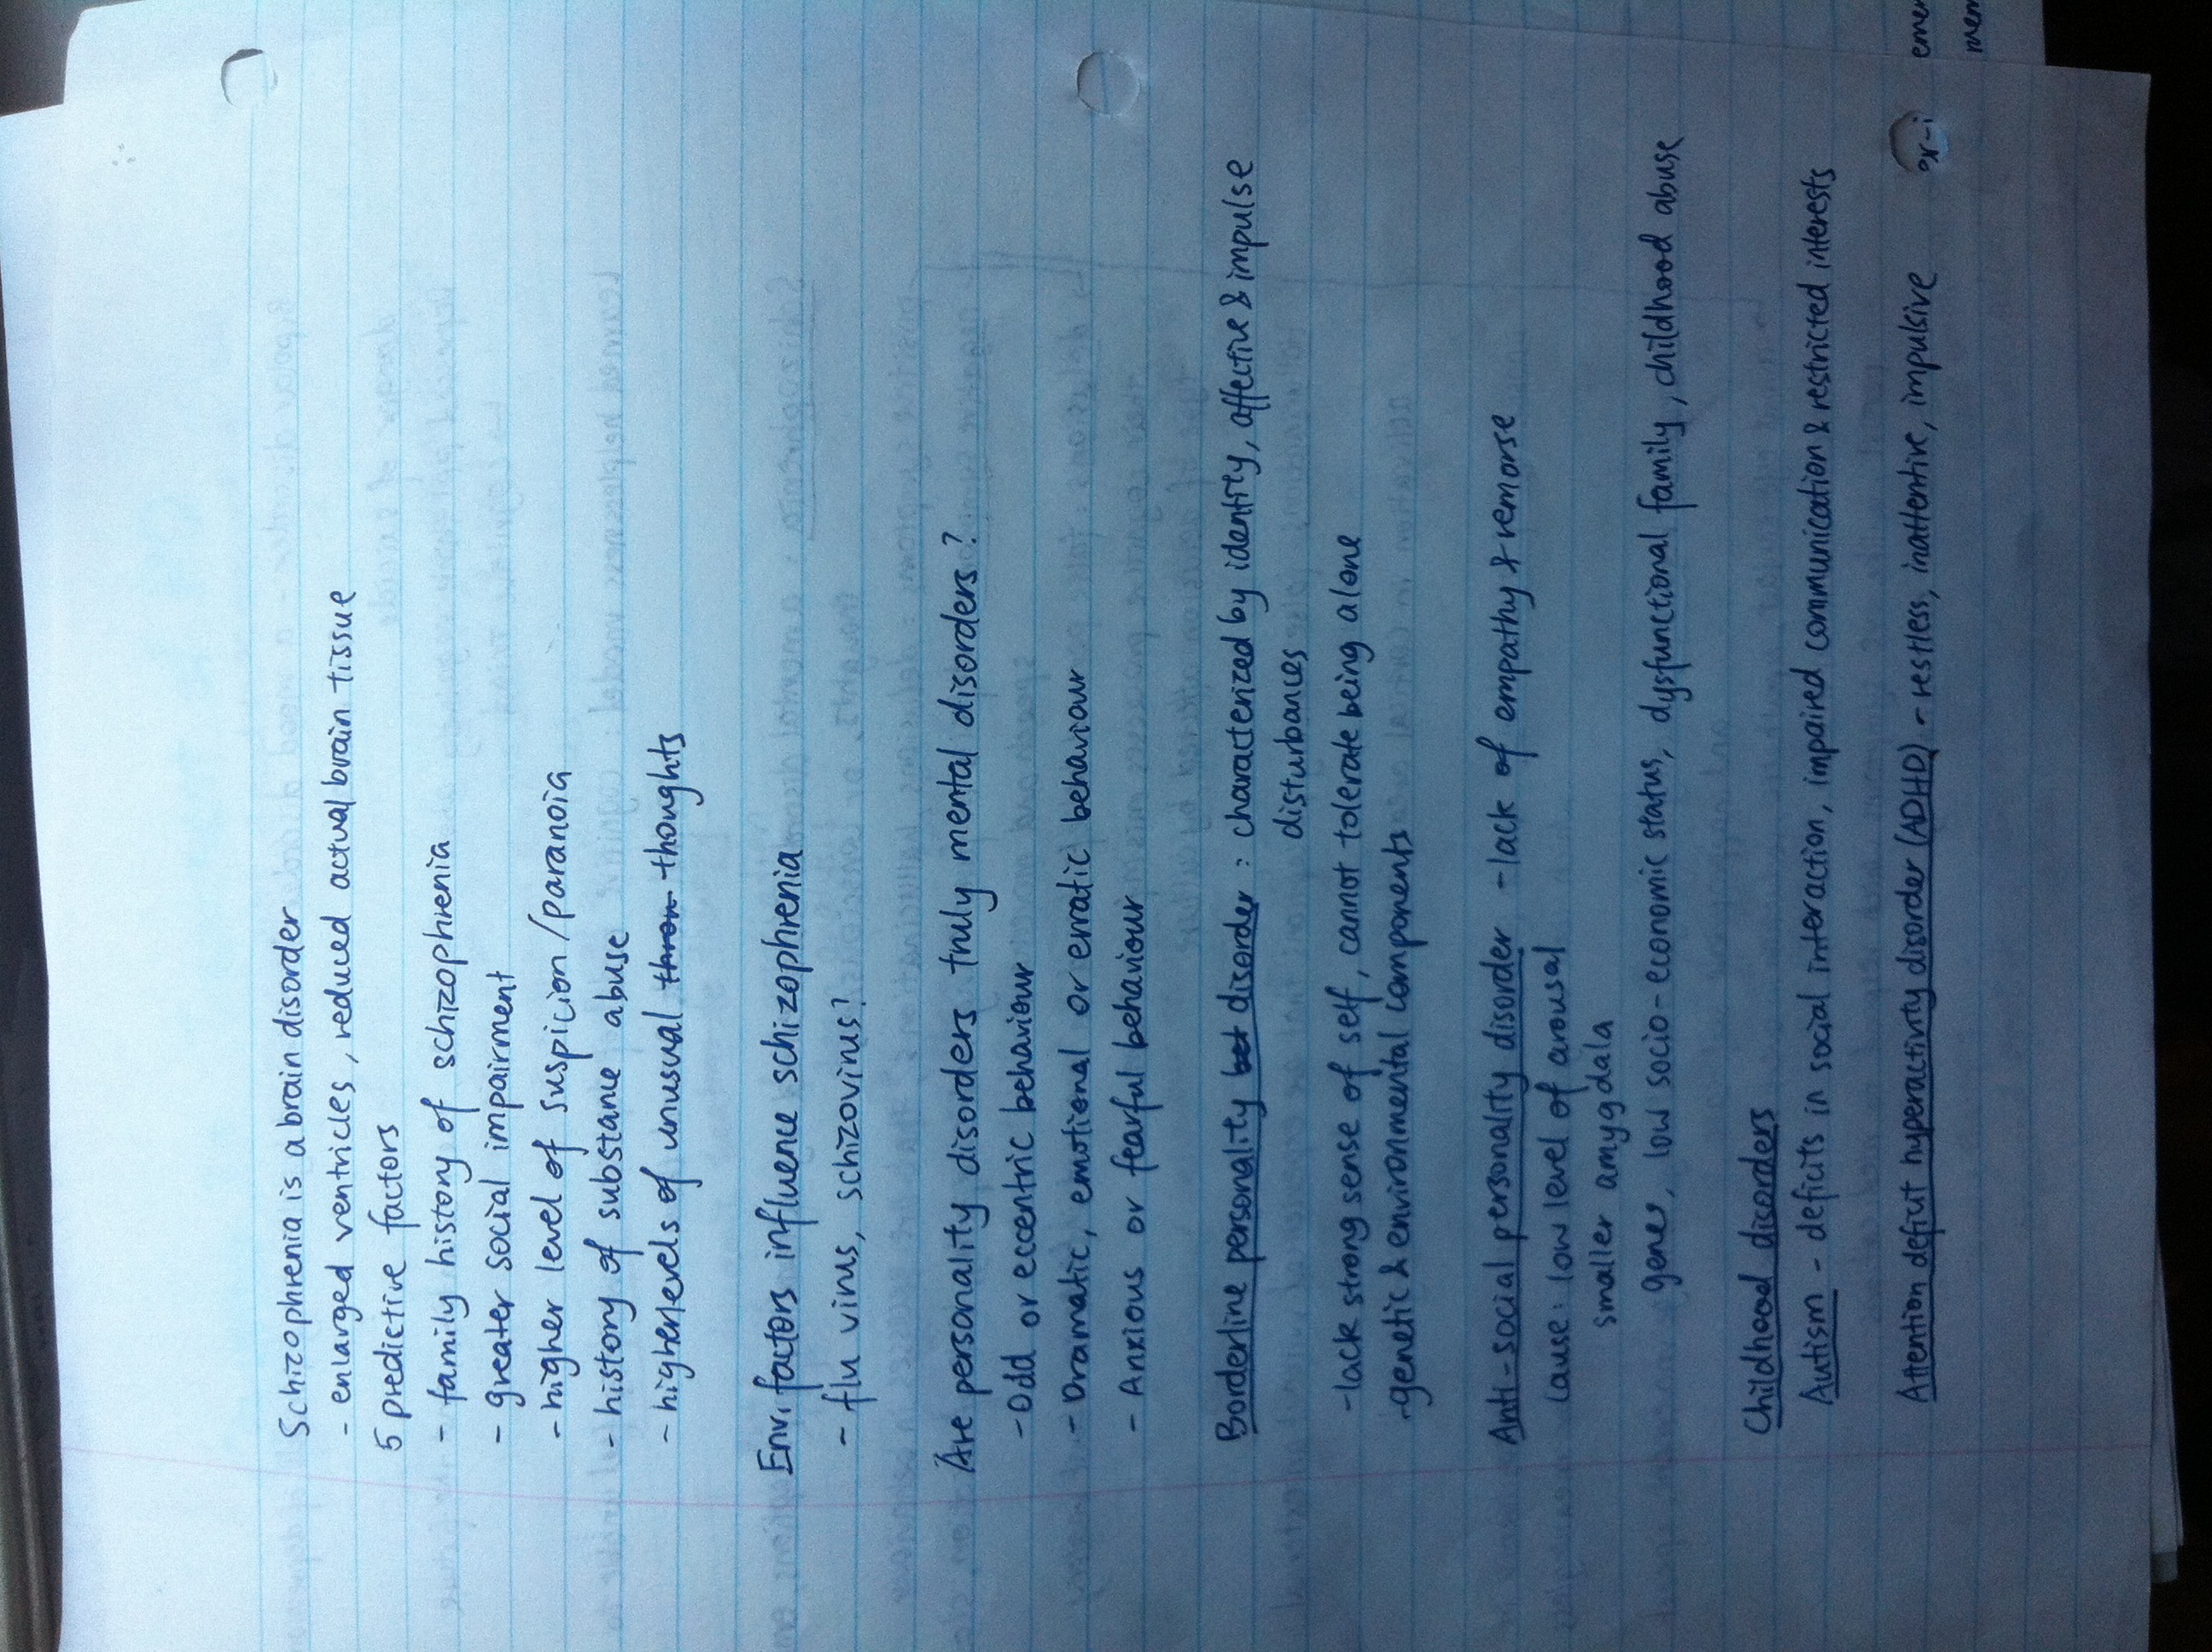 Schizophrenia is a brain disorder
- enlarged ventricles, reduced actual brain tissue
5 predictive factors
- family history of schizophrenia
- greater social impairment
- higher level of suspicion/paranoia
- history of substane abuse
- higher levels of unusual thron thoughts
Envi factors influence schizophrenia
- flu virus, schizovirus?
Are personality disorders truly mental disorders?
- Odd or eccentric behaviour
- Dramatic, emotional or erratic behaviour
- Anxious or fearful behaviour
Borderline personality disorder : characterized by identity, affective & impulse
disturbances
- lack strong sense of self, cannot tolerate being alone
- genetic & environmental components
Anti-social personality disorder - lack of empathy & remorse
cause: low level of arousal
smaller amygdala
genes, low socio-economic status, dysfunctional family, childhood abuse
Childhood disorders
Autism - deficits in social interaction, impaired communication & restricted interests
Attention deficit hyperactivity disorder (ADHD) - restless, inattentive, impulsive